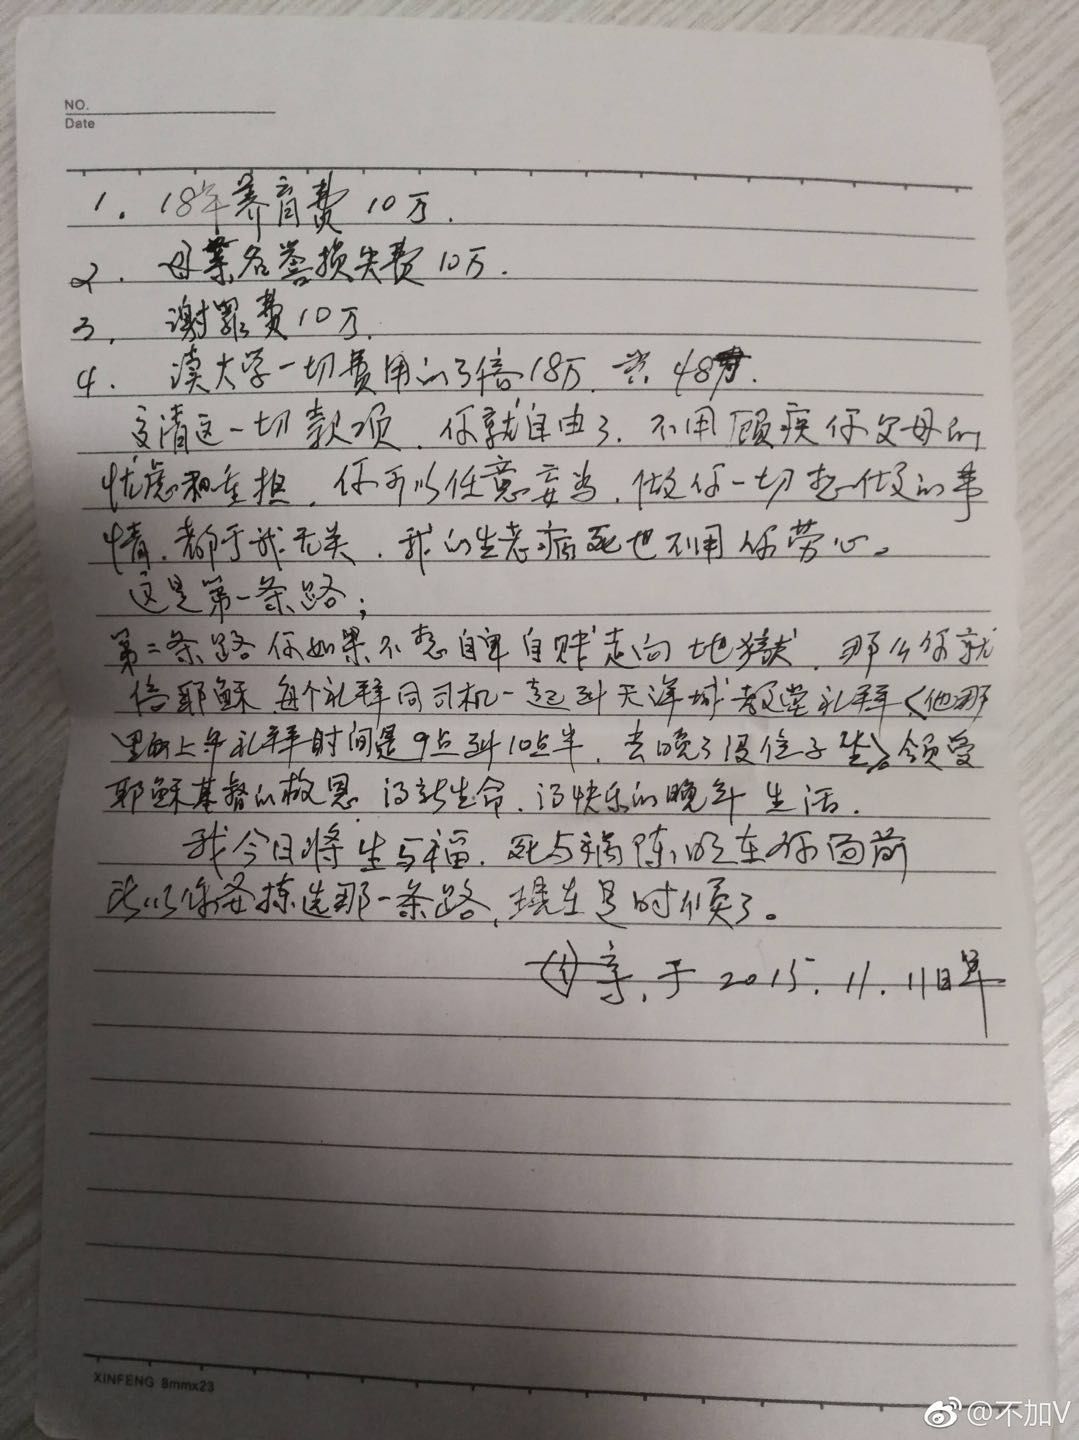 NO.
Date
1. 18年养育费10万.
2. 母亲名誉损失费10万.
3. 谢罪费10万.
4. 读大学一切费用的3倍18万. 共48万.
交清这一切款项. 你就自由了. 不用顾疾你父母的
忧虑和重担. 你可以任意妄为. 做你一切想做的事
情. 都于我无关. 我的生老病死也不用你劳心。
这是第一条路;
第二条路你如果不想自卑自贱走向地狱. 那么你就
信耶稣 每个礼拜同司机一起到天洋城教堂礼拜(他那
里的上午礼拜时间是9点到10点半. 去晚了没位子坐)领受
耶稣基督的救恩 得新生命. 得快乐的晚年生活.
我今日将生与福. 死与祸陈明在你面前
所以你要拣选那一条路, 现在是时候了。
母亲. 于2015.11.11日
XINFENG 8mmx23
@不加V